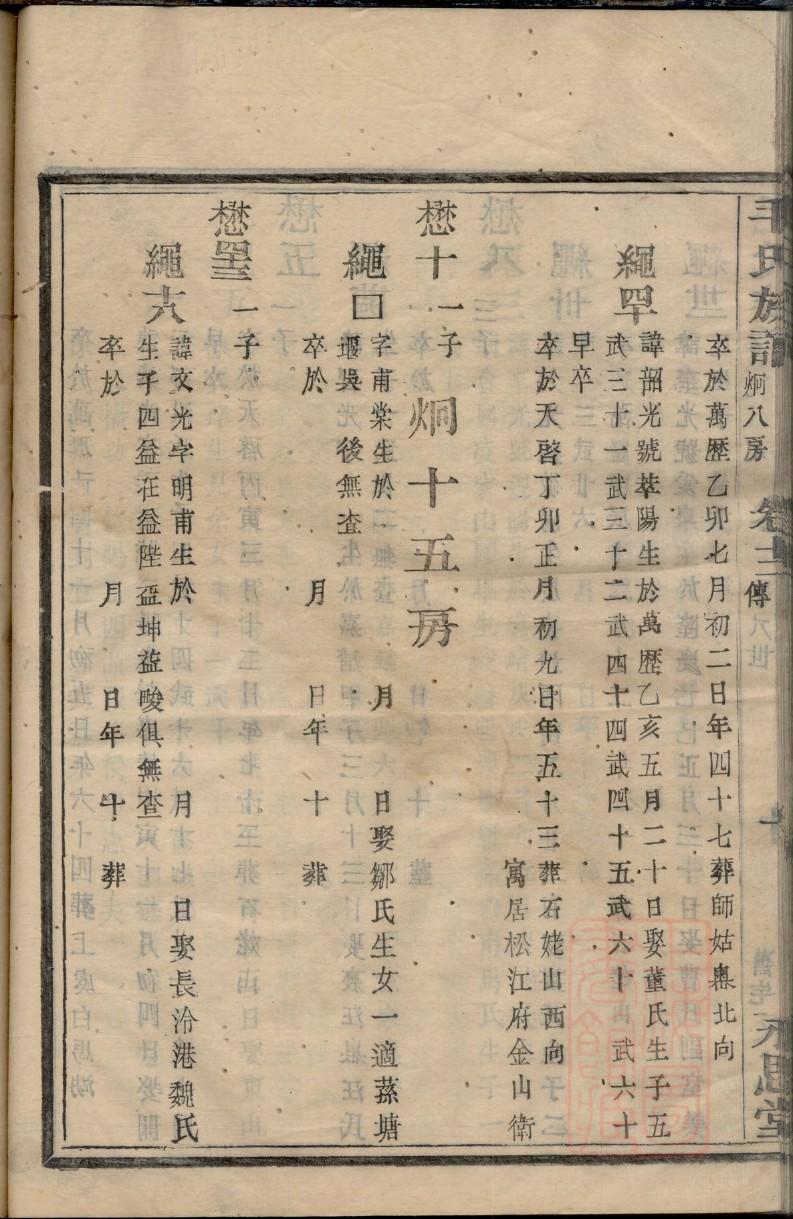 毛氏族譜 炯八房 卷十二 傳 永思堂
卒於萬歷乙卯七月初二日年四十七葬師姑奧北向
繩
諱韶光號萃陽生於萬歷乙亥五月二十日娶董氏生子五
武三十一武三十二武四十四武四十五武六十武六十
早卒
卒於天啓丁卯正月初九日年五十三葬石姥山西向
寓居松江府金山衛
懋十 一子 炯十五房
繩囗
字甫棠生於 月 日娶鄒氏生女一適蓀塘
堰吳後無查
卒於 月 日年 十 葬
懋 一子
繩六
諱文光字明甫生於 月 日娶長泠港魏氏
生子四益在益陛益坤益畯俱無查
卒於 月 日年 十 葬